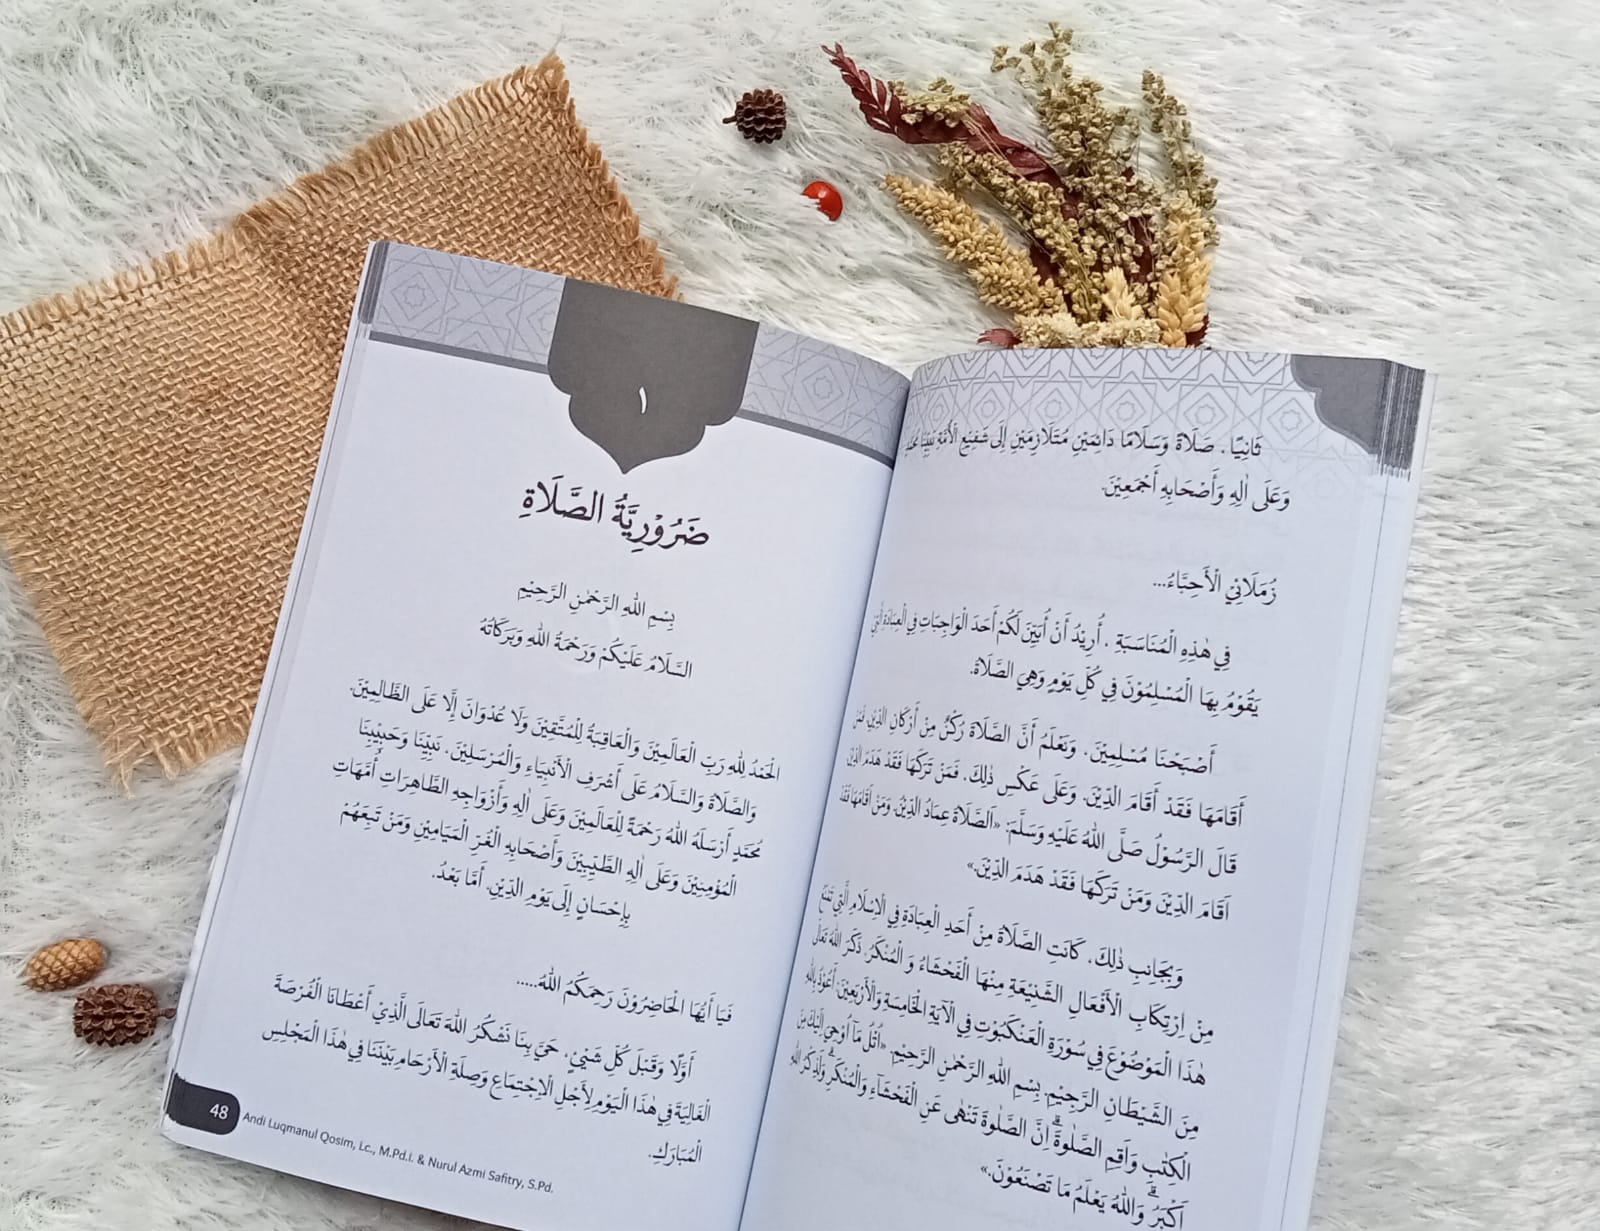 ١
ضَرُوْرِيَّةُ الصَّلَاةِ
بِسْمِ اللهِ الرَّحْمٰنِ الرَّحِيْمِ
السَّلَامُ عَلَيْكُمْ وَرَحْمَةُ اللهِ وَبَرَكَاتُهُ
الْحَمْدُ لِلّٰهِ رَبِّ الْعَالَمِيْنَ وَالْعَاقِبَةُ لِلْمُتَّقِيْنَ وَلَا عُدْوَانَ إِلَّا عَلَى الظَّالِمِيْنَ.
وَالصَّلَاةُ وَالسَّلَامُ عَلَى أَشْرَفِ الْأَنْبِيَاءِ وَالْمُرْسَلِيْنَ، نَبِيِّنَا وَحَبِيْبِنَا
مُحَمَّدٍ أَرْسَلَهُ اللهُ رَحْمَةً لِلْعَالَمِيْنَ وَعَلَى اٰلِهِ وَأَزْوَاجِهِ الطَّاهِرَاتِ أُمَّهَاتِ
الْمُؤْمِنِيْنَ وَعَلَى اٰلِهِ الطَّيِّبِيْنَ وَأَصْحَابِهِ الْغُرِّ الْمَيَامِيْنِ وَمَنْ تَبِعَهُمْ
بِإِحْسَانٍ إِلَى يَوْمِ الدِّيْنِ. أَمَّا بَعْدُ.
فَيَا أَيُّهَا الْحَاضِرُوْنَ رَحِمَكُمُ اللهُ.....
أَوَّلًا وَقَبْلَ كُلِّ شَيْئٍ، حَيَّ بِنَا نَشْكُرُ اللهَ تَعَالَى الَّذِيْ أَعْطَانَا الْفُرْصَةَ
الْغَالِيَةَ فِي هٰذَا الْيَوْمِ لِأَجْلِ الْاِجْتِمَاعِ وَصِلَةِ الْأَرْحَامِ بَيْنَنَا فِي هٰذَا الْمَجْلِسِ
الْمُبَارَكِ.
48
Andi Luqmanul Qosim, Lc., M.Pd.i. & Nurul Azmi Safitry, S.Pd.
ثَانِيًا . صَلَاةً وَسَلَامًا دَائِمَيْنِ مُتَلَازِمَيْنِ إِلَى شَفِيْعِ الْأُمَّةِ نَبِيِّنَا
وَعَلَى اٰلِهِ وَأَصْحَابِهِ أَجْمَعِيْنَ.
زُمَلَائِيْ الْأَحِبَّاءُ...
فِي هٰذِهِ الْمُنَاسَبَةِ . أُرِيْدُ أَنْ أُبَيِّنَ لَكُمْ أَحَدَ الْوَاجِبَاتِ فِي الْعِبَادَةِ الَّتِيْ
يَقُوْمُ بِهَا الْمُسْلِمُوْنَ فِي كُلِّ يَوْمٍ وَهِيَ الصَّلَاةُ.
أَصْبَحْنَا مُسْلِمِيْنَ . وَنَعْلَمُ أَنَّ الصَّلَاةَ رُكْنٌ مِنْ أَرْكَانِ الدِّيْنِ فَمَنْ
أَقَامَهَا فَقَدْ أَقَامَ الدِّيْنَ. وَعَلَى عَكْسِ ذٰلِكَ، فَمَنْ تَرَكَهَا فَقَدْ هَدَمَ الدِّيْنَ
قَالَ الرَّسُوْلُ صَلَّى اللهُ عَلَيْهِ وَسَلَّمَ: «الصَّلَاةُ عِمَادُ الدِّيْنِ، وَمَنْ أَقَامَهَا فَقَدْ
أَقَامَ الدِّيْنَ وَمَنْ تَرَكَهَا فَقَدْ هَدَمَ الدِّيْنَ.»
وَبِجَانِبِ ذٰلِكَ، كَانَتِ الصَّلَاةُ مِنْ أَحَدِ الْعِبَادَةِ فِي الْاِسْلَامِ الَّتِيْ تَمْنَعُ
مِنْ اِرْتِكَابِ الْأَفْعَالِ الشَّنِيْعَةِ مِنْهَا الْفَحْشَاءُ وَ الْمُنْكَرُ. ذَكَرَ اللهُ تَعَالَى
هٰذَا الْمَوْضُوْعَ فِي سُوْرَةِ الْعَنْكَبُوْتِ فِي الْآيَةِ الْخَامِسَةِ وَالْأَرْبَعِيْنَ: أَعُوْذُ بِاللهِ
مِنَ الشَّيْطَانِ الرَّجِيْمِ. بِسْمِ اللهِ الرَّحْمٰنِ الرَّحِيْمِ. «اُتْلُ مَآ اُوْحِيَ اِلَيْكَ مِنَ
الْكِتٰبِ وَاَقِمِ الصَّلٰوةَۗ اِنَّ الصَّلٰوةَ تَنْهٰى عَنِ الْفَحْشَاۤءِ وَالْمُنْكَرِۗ وَلَذِكْرُ اللهِ
اَكْبَرُۗ وَاللهُ يَعْلَمُ مَا تَصْنَعُوْنَ.»